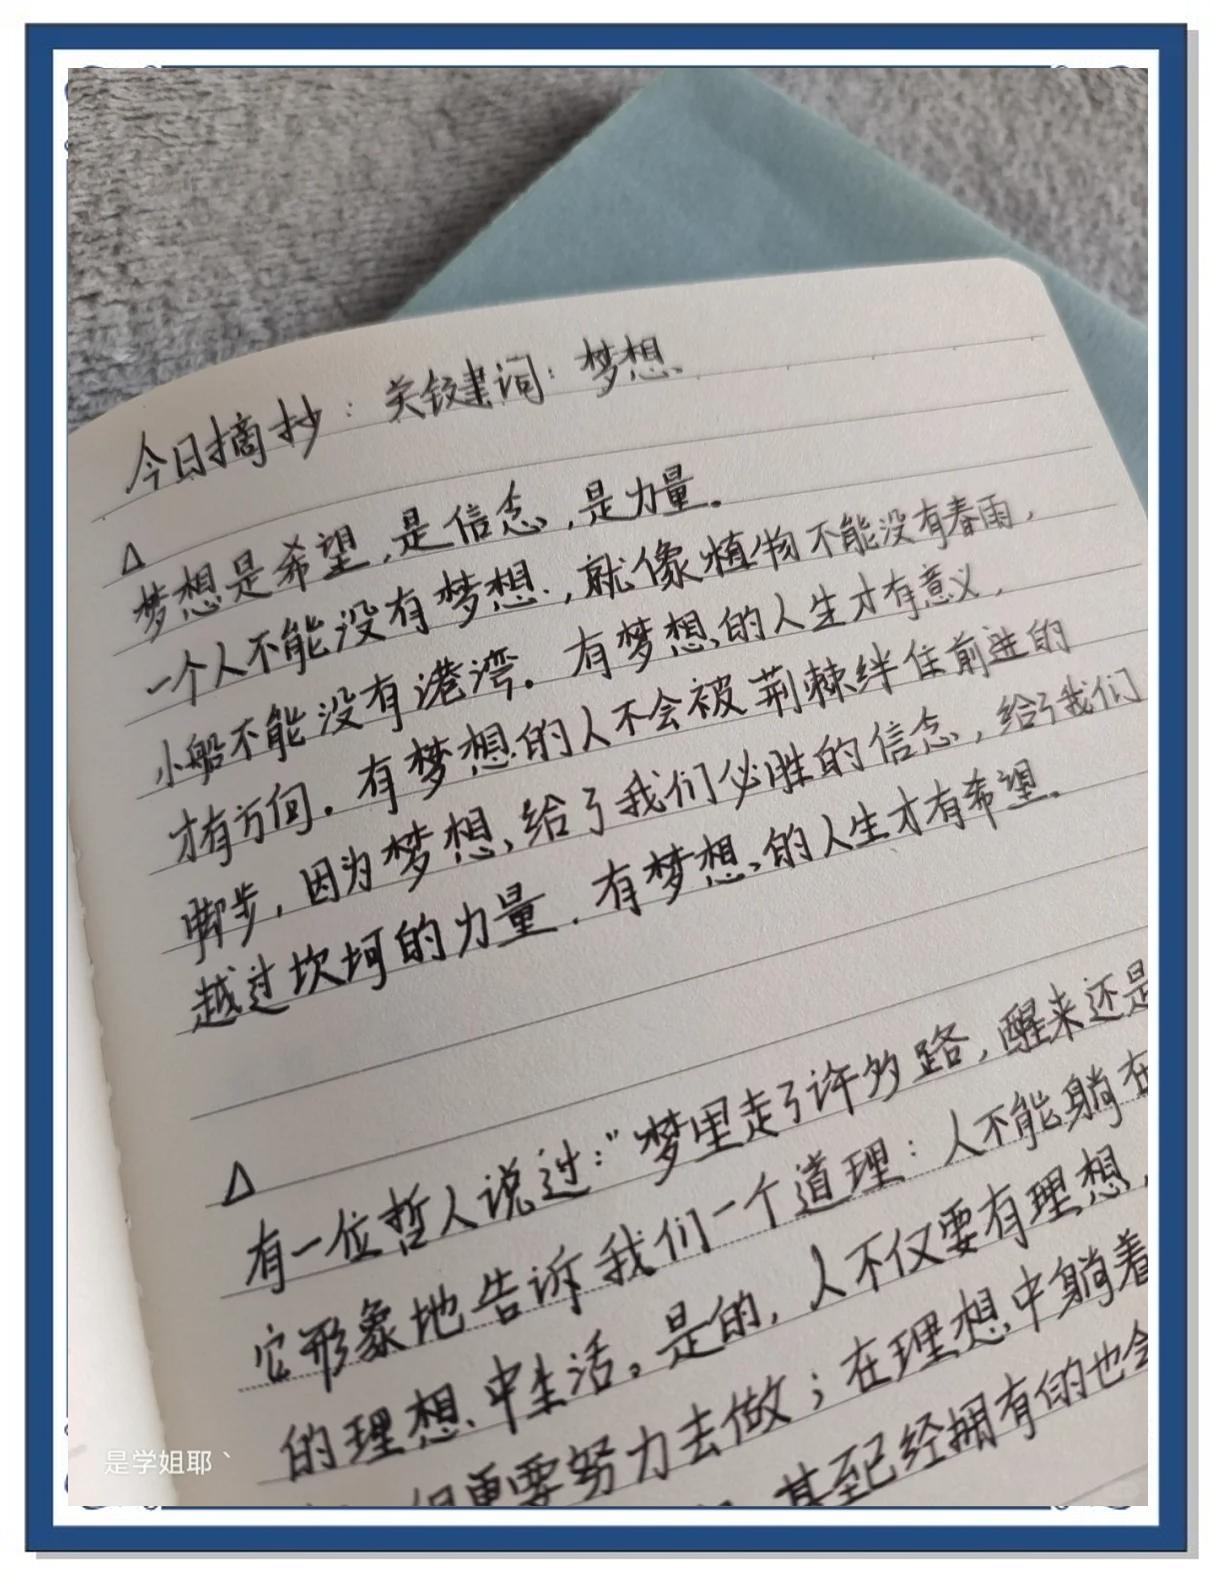 今日摘抄：关键词：梦想
△
梦想是希望,是信念,是力量。
一个人不能没有梦想,就像植物不能没有春雨,
小船不能没有港湾。有梦想的人生才有意义,
才有方向.有梦想的人不会被荆棘绊住前进的
脚步,因为梦想,给了我们必胜的信念,给了我们
越过坎坷的力量.有梦想的人生才有希望.
△
有一位哲人说过:"梦里走了许多路,醒来还是
它形象地告诉我们一个道理:人不能躺在
的理想中生活。是的,人不仅要有理想,
但更要努力去做;在理想中躺着
甚至已经拥有的也会
是学姐耶`